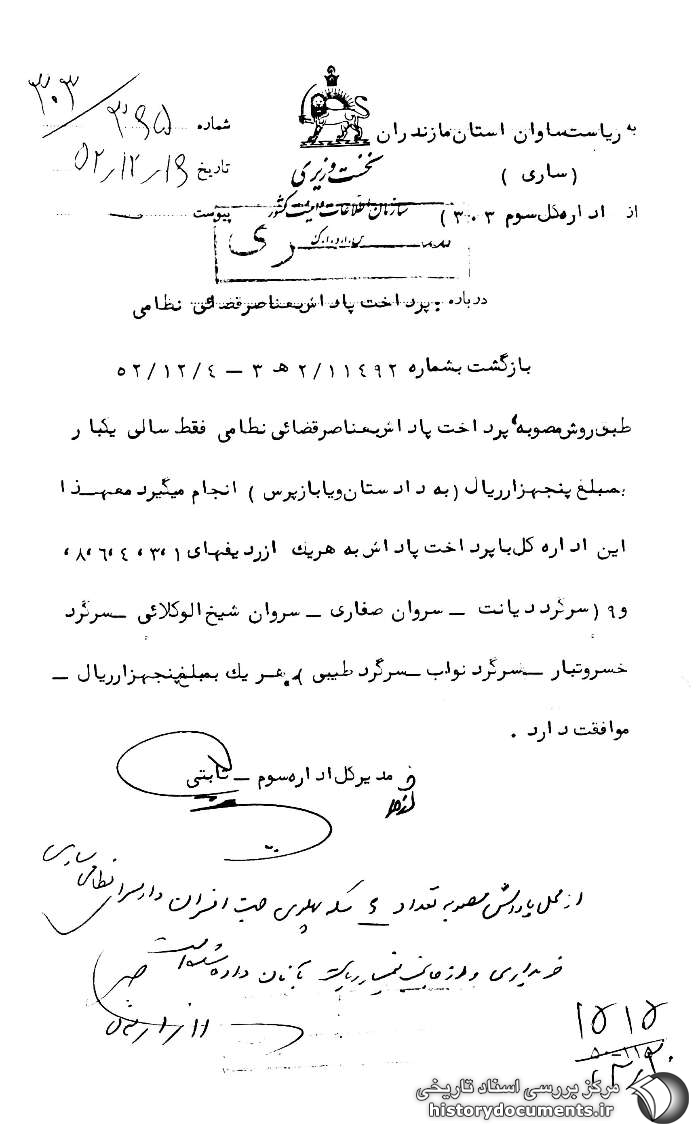 ۳۰۳
شماره ۳۹۵
تاریخ ۵۲/۱۲/۱۹
پیوست
نخست وزیری
سازمان اطلاعات و امنیت کشور
س.ا.و.ا.ک
سری
به ریاست ساوان استان مازندران
(ساری)
از اداره کل سوم ۳۰۳)
درباره: پرداخت پاداش بعناصر قضائی نظامی
بازگشت بشماره ۲/۱۱۴۹۲ هـ ۳ – ۵۲/۱۲/۴
طبق روش مصوبه، پرداخت پاداش بعناصر قضائی نظامی فقط سالی یکبار
بمبلغ پنجهزارریال (به دادستان و یا بازپرس) انجام میگیرد معهـذا
این اداره کل با پرداخت پاداش به هریك از ردیفهای ۱، ۳، ۴، ۶، ۸،
و ۹ (سرگرد دیانت – سروان صفاری – سروان شیخ الوکلائی – سرگرد
خسروتبار – سرگرد نواب – سرگرد طیبی) هر یك بمبلغ پنجهزارریال –
موافقت دارد.
مدیرکل اداره سوم – ثابتی
از محل پاداش مصوبه تعداد ۶ سکه پهلوی جهت افسران دادسرای نظامی ساری
خریداری و از طرف ریاست بآنان داده شده است
۱۵۱۵
مرکز بررسی اسناد تاریخی
historydocuments.ir